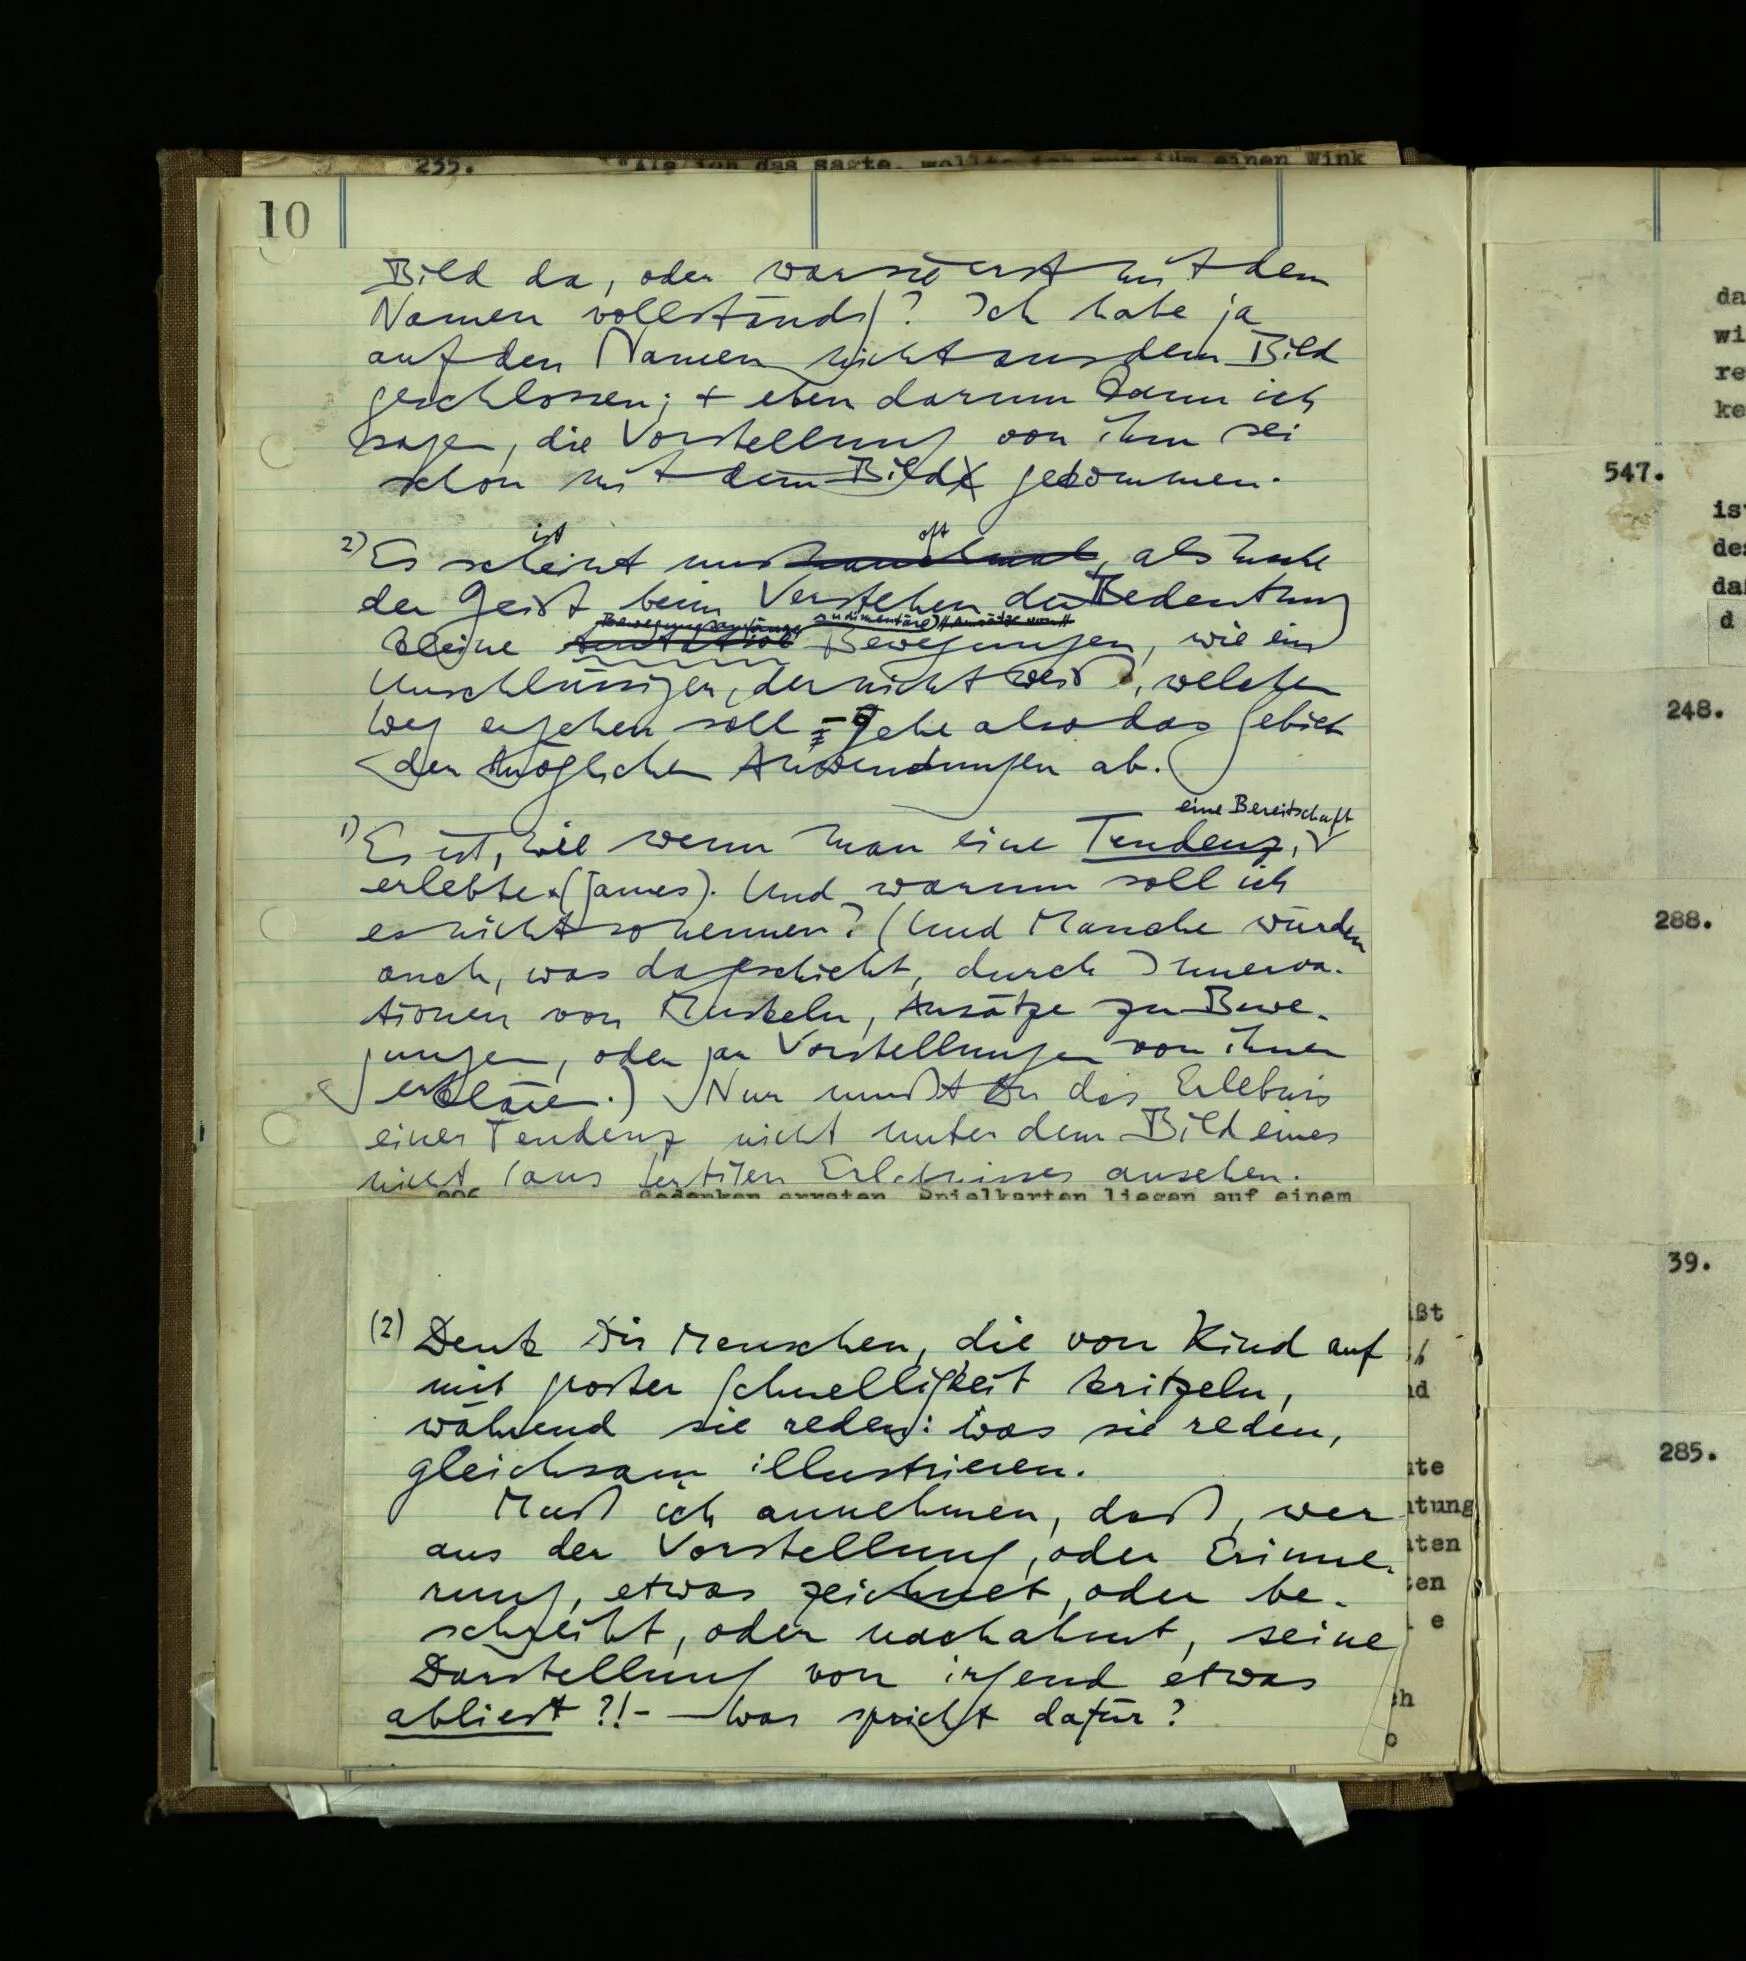 235. "Als ich das sagte, wollte ich nur ihm einen Wink
10
Bild da, oder war sie erst mit dem
Namen vollständig? Ich habe ja
auf den Namen nicht aus dem Bild
geschlossen; + eben darum kann ich
sagen, die Vorstellung von ihm sei
schon mit dem Bild gekommen.
ist oft
2) Es scheint uns manchmal, als mache
der Geist beim Verstehen der Bedeutung
Bewegungsanfänge rudimentäre Ansätze von
kleine Bewegungen, wie ein
Unschlüssiger, der nicht weiß, welchen
Weg er gehen soll – gehe also das Gebiet
der möglichen Anwendungen ab.
eine Bereitschaft
1) Es ist, wie wenn man eine Tendenz,
erlebte (James). Und warum soll ich
es nicht so nennen? (Und Manche würden
auch, was da geschieht, durch Innerva-
tionen von Muskeln, Ansätze zu Bewe-
gungen, oder gar Vorstellungen von ihnen
erklären.) Nur mußt Du das Erlebnis
einer Tendenz nicht unter dem Bild eines
nicht ganz fertigen Erlebnisses ansehen.
Gedanken erraten. Spielkarten liegen auf einem
(2) Denk Dir Menschen, die von Kind auf
mit großer Schnelligkeit kritzeln,
während sie reden: was sie reden,
gleichsam illustrieren.
Muß ich annehmen, daß, wer
aus der Vorstellung, oder Erinne-
rung, etwas zeichnet, oder be-
schreibt, oder nachahmt, seine
Darstellung von irgend etwas
abliest?!– – Was spricht dafür?
ißt
nd
te
tung
ten
ten
e
ch
o
da
wi
re
ke
547.
is
de
da
d
248.
288.
39.
285.